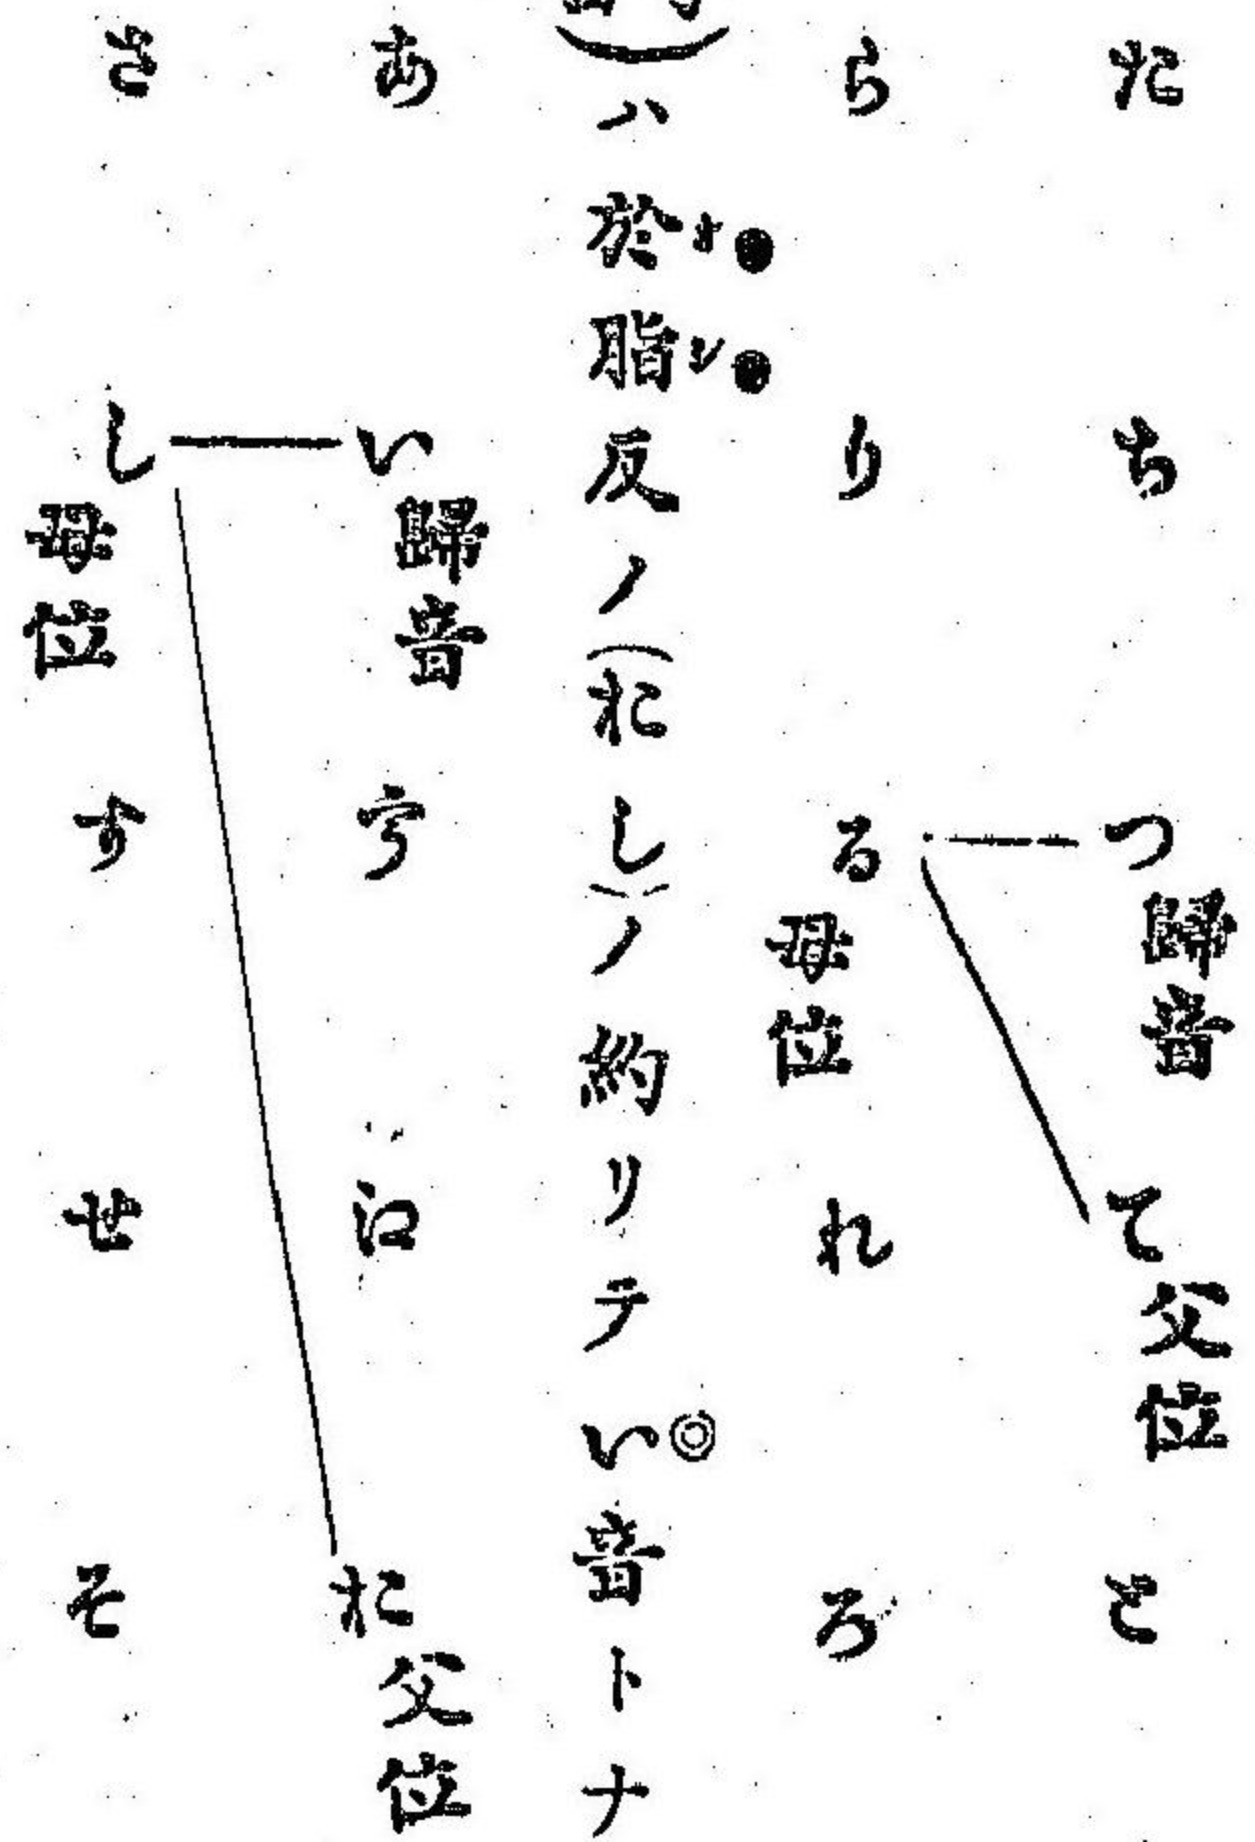 た ち つ 歸音 て 父位 と
ら り る 母位 れ ろ
)ハ於オ脂シ反ノ(おし)ノ約リテい◎音トナ
あ い 歸音 う 江 お 父位
さ し 母位 す せ そ